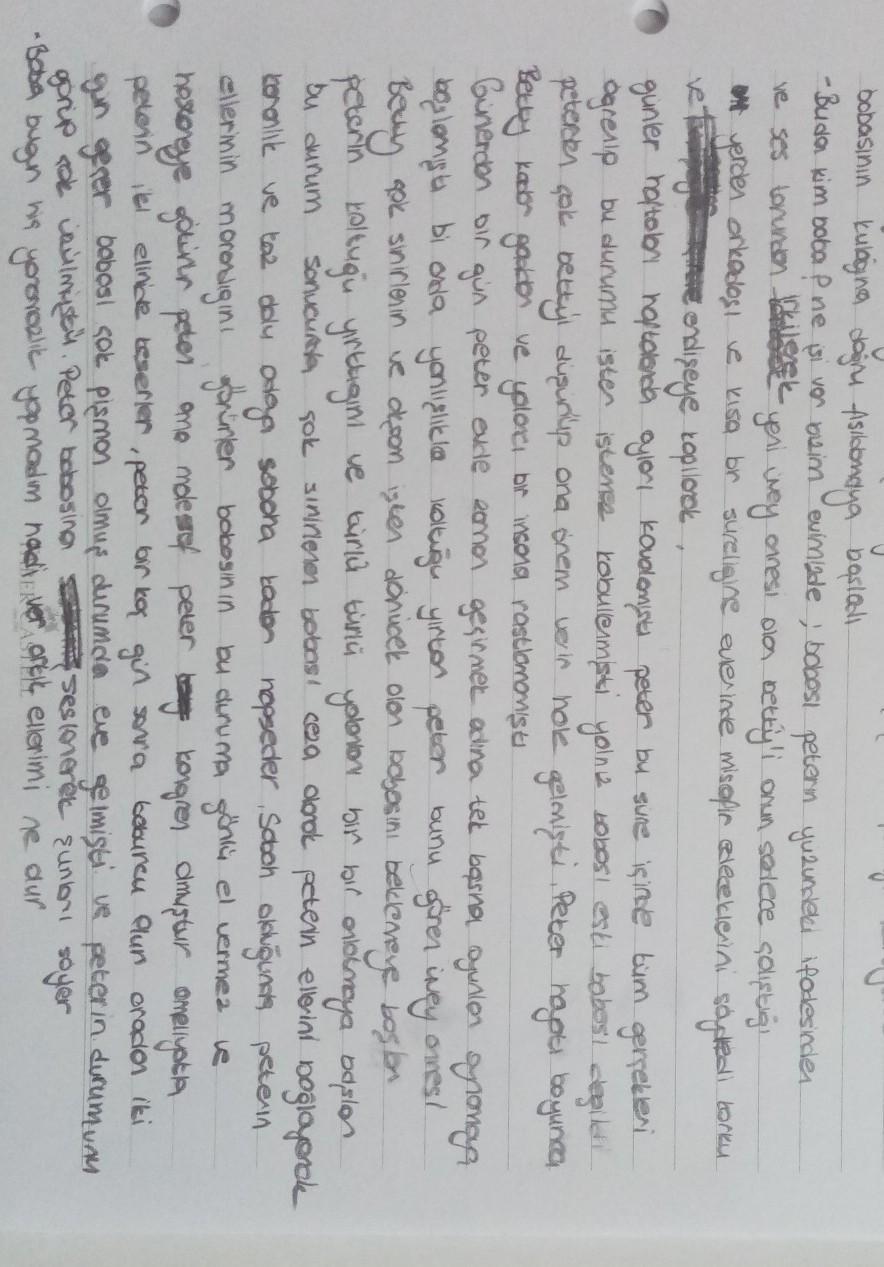 babasının kulağına doğru fısıldamaya başladı
- Buda kim baba? ne işi var bizim evimizde, babası peterin yüzündeki ifadesinden
ve ses tonundan irkilerek yeni üvey annesi olan bettyi'i onun sadece çalıştığı
yerden arkadaşı ve kısa bir süreliğine evlerinde misafir edeceklerini söyledi korku
ve endişeye kapılarak,
günler haftaları haftalarda ayları kovalamıştı peter bu süre içinde tüm gerçekleri
öğrenip bu durumu ister istemez kabullenmişti yalnız babası eski babası değildi
peterden çok bettyi düşünüp ona önem verir hale gelmişti. Peter hayatı boyunca
Betty kadar gaddar ve yalancı bir insana rastlamamıştı
Günlerden bir gün peter evde zaman geçirmek adına tek başına oyunlar oynamaya
başlamıştı bi anda yanlışlıkla koltuğu yırtan peter bunu gören üvey annesi
Betty çok sinirlenir ve akşam işten dönücek olan babasını beklemeye başlar
peterin koltuğu yırttığını ve türlü türlü yalanları bir bir anlatmaya başlar
bu durum sonucunda çok sinirlenen babası ceza olarak peterin ellerini bağlayarak
karanlık ve toz dolu odaya sabaha kadar hapseder. Sabah olduğunda peterin
ellerinin morardığını görünler babasının bu duruma gönlü el vermez ve
hastaneye götürür peteri ama malesef peter kangren olmuştur ameliyatla
peterin iki elinide keserler, peter bir kaç gün sonra taburcu olur aradan iki
gün geçer babası çok pişman olmuş durumda eve gelmişti ve peterin durumunu
görüp çok üzülmüştü. Peter babasına seslenerek şunları söyler
- Baba bugün hiç yaramazlık yapmadım hadi ver artık ellerimi ne olur